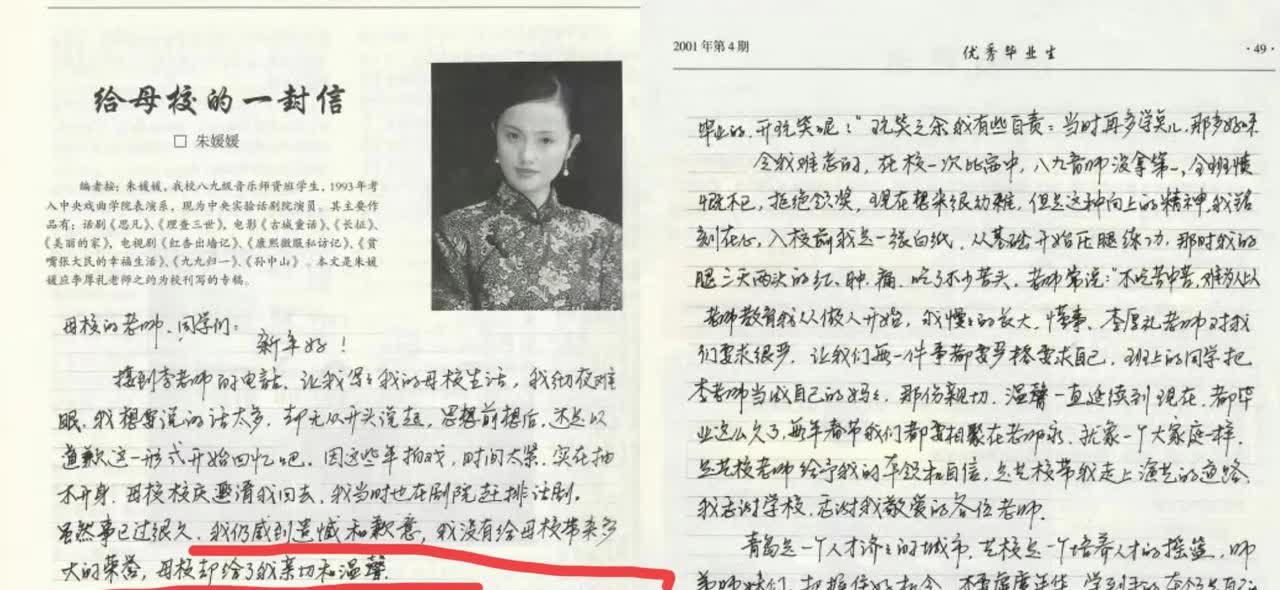 给母校的一封信
□ 朱媛媛
编者按：朱媛媛，我校八九级音乐师资班学生，1993年考
入中央戏曲学院表演系，现为中央实验话剧院演员。其主要作
品有：话剧《思凡》、《理查三世》，电影《古城童话》、《长征》、
《美丽的家》，电视剧《红杏出墙记》、《康熙微服私访记》、《贫
嘴张大民的幸福生活》、《九九归一》、《孙中山》。本文是朱媛
媛应李厚礼老师之约为校刊写的专稿。
母校的老师、同学们：
新年好！
接到李老师的电话，让我写写我的母校生活，我彻夜难
眠，我想要说的话太多，却无从开头说起，思想前想后，还是以
道歉这一形式开始回忆吧。因这些年拍戏，时间太紧，实在抽
不开身，母校校庆邀请我回去，我当时也在剧院赶排话剧。
虽然事已过很久，我仍感到遗憾和歉意，我没有给母校带来多
大的荣誉，母校却给了我亲切和温馨。
2001年第4期
优秀毕业生
·49·
毕业的，开玩笑呢！”玩笑之余我有些自责：当时再多学点儿，那多好呀
令我难忘的，在校一次比赛中，八九音师没拿第一，全班愤
慨不已，拒绝领奖，现在想来很幼稚，但是这种向上的精神，我铭
刻在心，入校前我是一张白纸，从基础开始压腿练功，那时我的
腿三天两次的红、肿、痛，吃了不少苦头，老师常说：“不吃苦中苦，难为人上人
老师教育我从做人开始，我慢慢的长大，懂事，李厚礼老师对我
们要求很严，让我们每一件事都要严格要求自己，班上的同学把
李老师当成自己的妈妈，那份亲切、温馨一直延续到现在，都毕
业这么久了，每年春节我们都要相聚在老师家，就象一个大家庭一样，
是艺校老师给予我的本领和自信，是艺校带我走上演艺的道路，
我感谢学校，感谢我敬爱的各位老师。
青岛是一个人才济济的城市，艺校是一个培养人才的摇篮，师
弟师妹们，把握住好机会，不要虚度年华，学到手的本领是自己